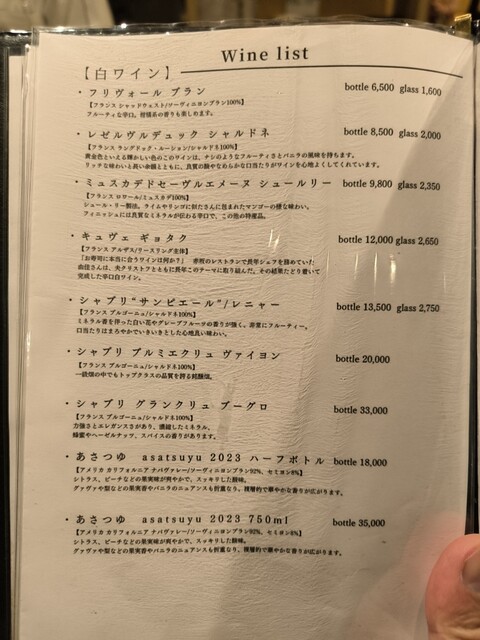 Wine list
【白ワイン】
・フリヴォール ブラン bottle 6,500 glass 1,600
【フランス シャッドウェスト/ソーヴィニヨンブラン100%】
フルーティな辛口。柑橘系の香りも楽しめます。
・レゼルヴルデュック シャルドネ bottle 8,500 glass 2,000
【フランス ラングドック・ルーション/シャルドネ100%】
黄金色といえる輝かしい色のこのワインは、ナシのようなフルーティさとバニラの風味を持ちます。
リッチな味わいと長い余韻とともに、良質の酸やなめらかな口当たりがワインを心地よくしてくれています。
・ミュスカデドセーヴルエメーヌ シュールリー bottle 9,800 glass 2,350
【フランス ロワール/ミュスカデ100%】
シュール・リー製法。ライムやリンゴに似たさんに包まれたマンゴーの様な味わい。
フィニッシュには良質なミネラルが伝わる辛口で、この他の特産品。
・キュヴェ ギョタク bottle 12,000 glass 2,650
【フランス アルザス/リースリング主体】
「お寿司に本当に合うワインは何か？」 赤坂のレストランで長年シェフを務めていた
由佳さんは、夫クリストフとともに長年このテーマに取り組んだ。その結果たどり着いて
完成した辛口白ワイン。
・シャブリ“サンピエール”/レニャー bottle 13,500 glass 2,750
【フランス ブルゴーニュ/シャルドネ100%】
ミネラル香を伴った白い花やグレープフルーツの香りが強く、非常にフルーティー。
口当たりはまろやかでいきいきとした心地良い味わい。
・シャブリ プルミエクリュ ヴァイヨン bottle 20,000
【フランス ブルゴーニュ/シャルドネ100%】
一級畑の中でもトップクラスの品質を誇る銘醸畑。
・シャブリ グランクリュ ブーグロ bottle 33,000
【フランス ブルゴーニュ/シャルドネ100%】
力強さとエレガンスさがあり、濃縮したミネラル。
蜂蜜やヘーゼルナッツ、スパイスの香りがあります。
・あさつゆ asatsuyu 2023 ハーフボトル bottle 18,000
【アメリカ カリフォルニア ナパヴァレー/ソーヴィニヨンブラン92%、セミヨン8%】
シトラス、ピーチなどの果実味が爽やかで、スッキリした酸味。
グァヴァや梨などの果実香やバニラのニュアンスも折重なり、複層的で華やかな香りが広がります。
・あさつゆ asatsuyu 2023 750ml bottle 35,000
【アメリカ カリフォルニア ナパヴァレー/ソーヴィニヨンブラン92%、セミヨン8%】
シトラス、ピーチなどの果実味が爽やかで、スッキリした酸味。
グァヴァや梨などの果実香やバニラのニュアンスも折重なり、複層的で華やかな香りが広がります。